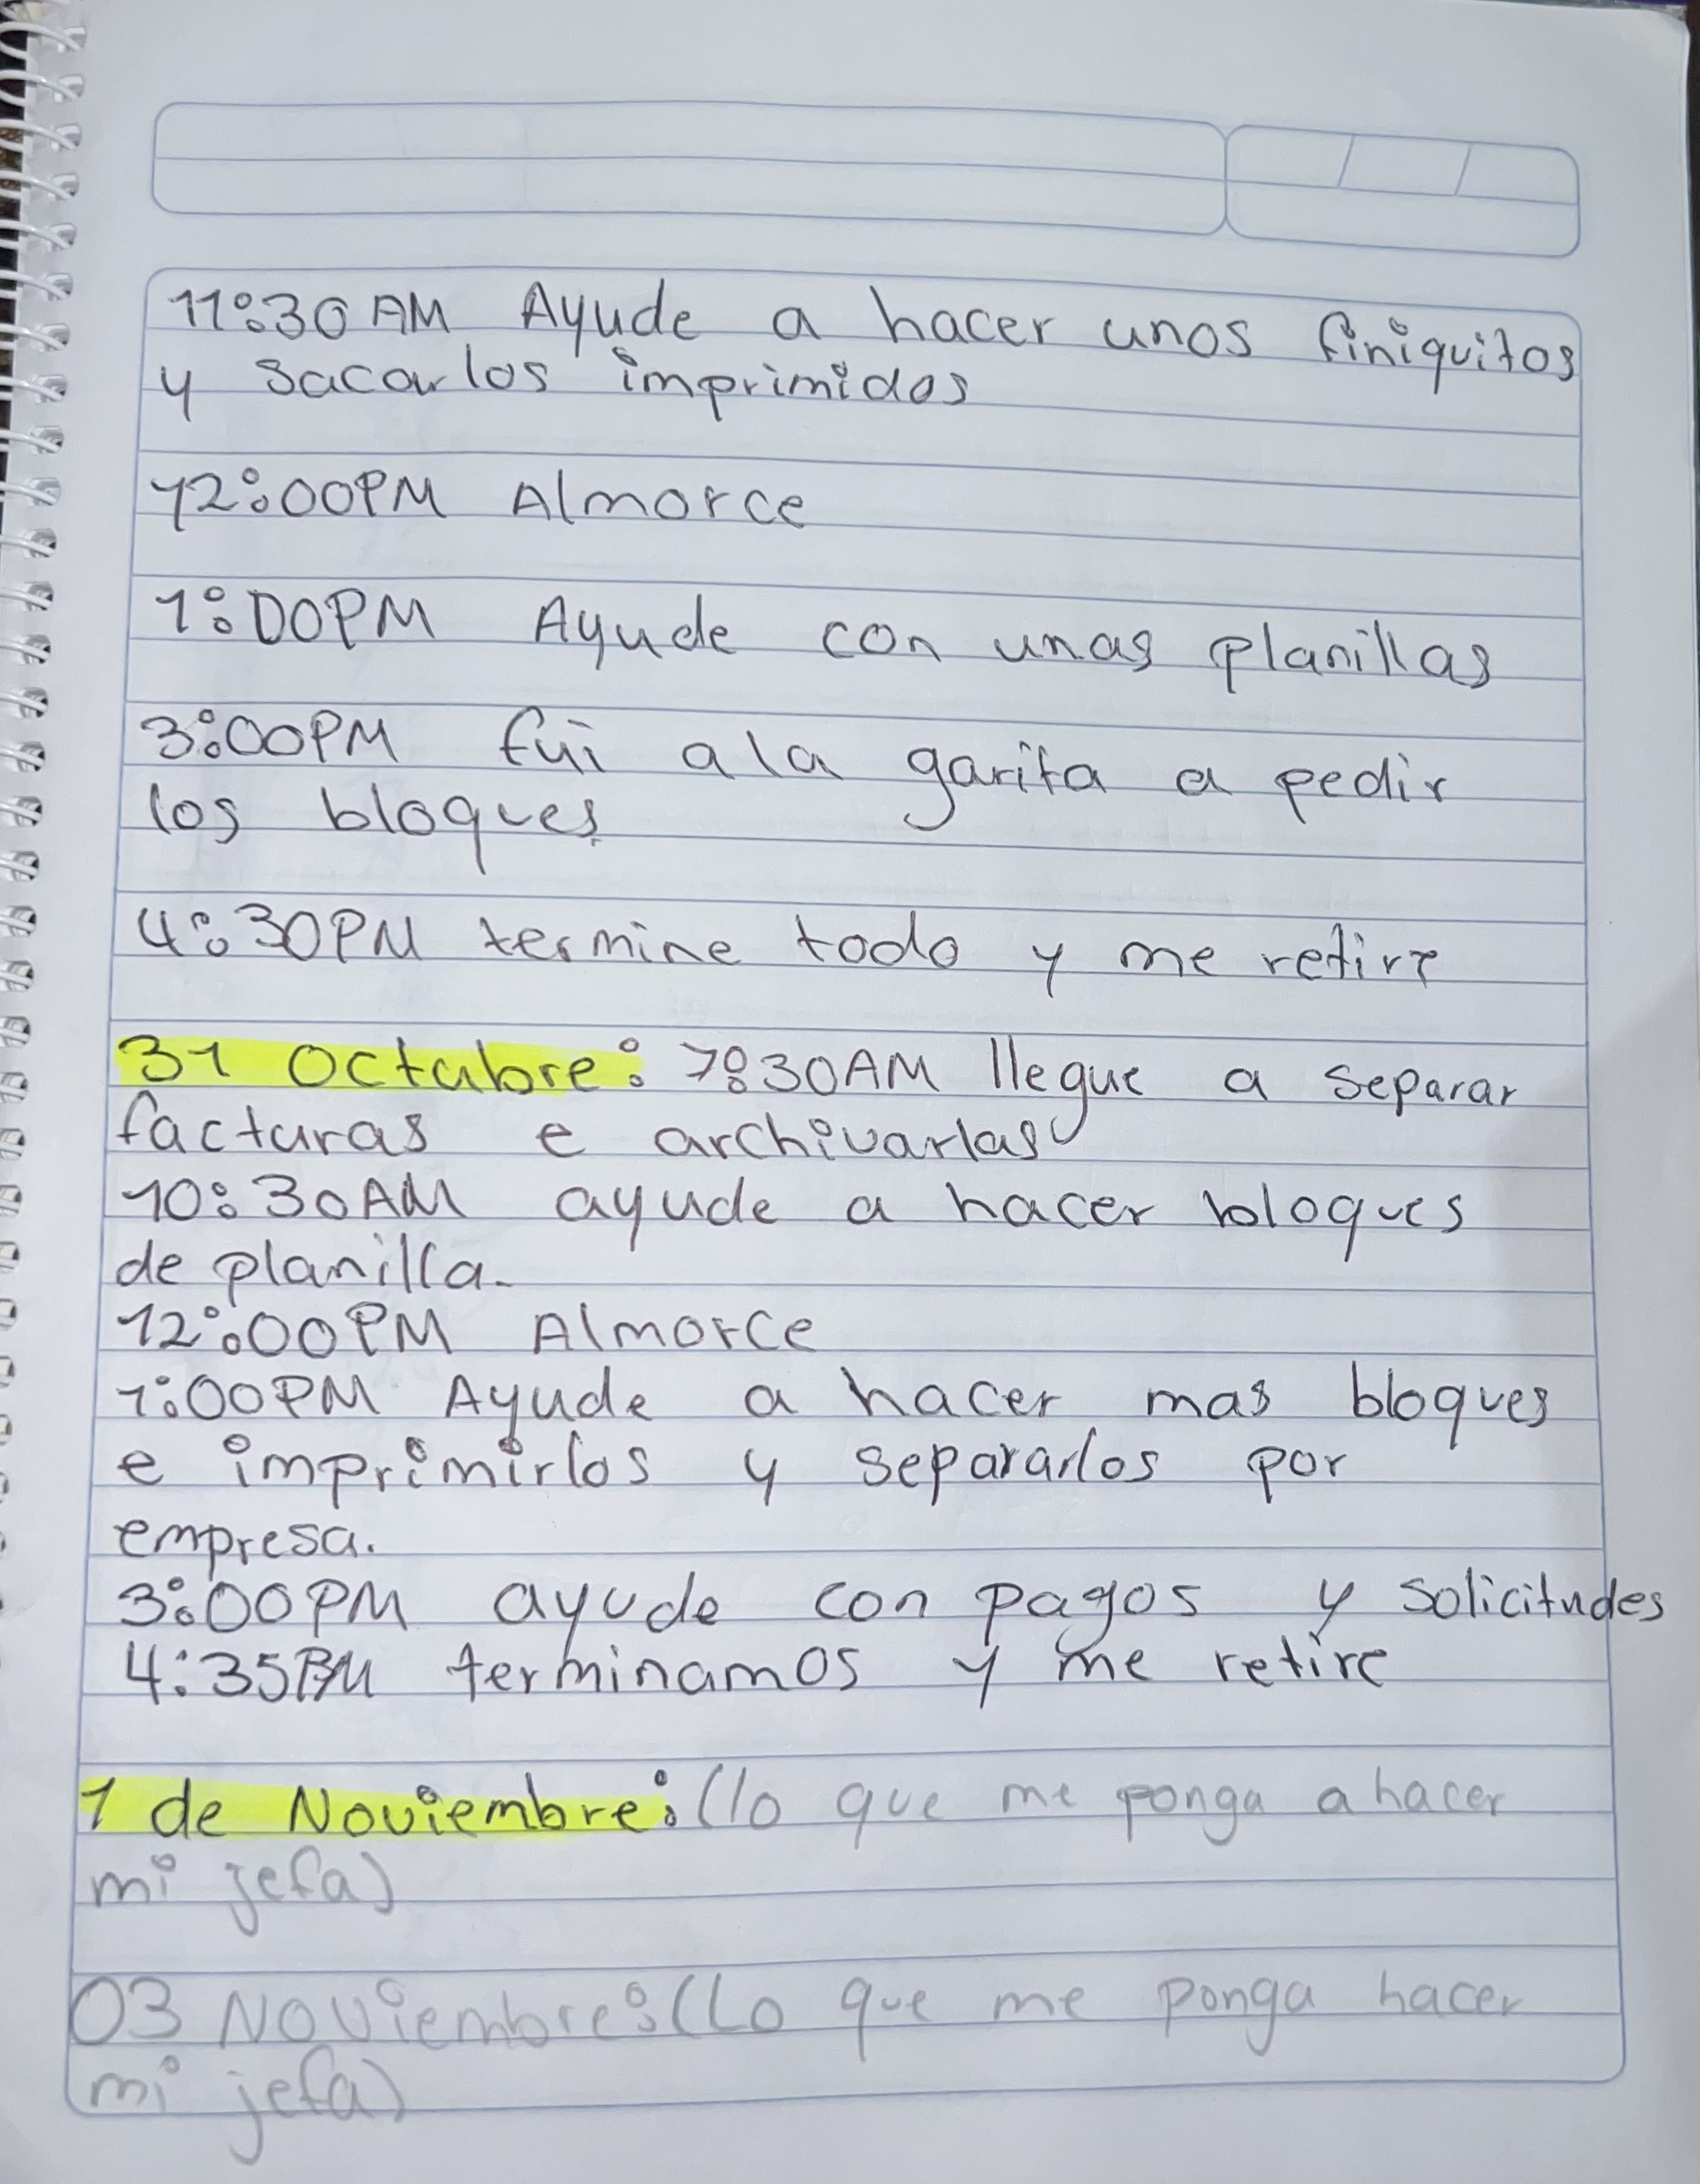 11:30 AM Ayude a hacer unos finiquitos
y sacarlos imprimidos
12:00PM Almorce
1:00PM Ayude con unas planillas
3:00PM fui a la garita a pedir
los bloques
4:30PM termine todo y me retire
31 Octubre: 7:30AM llegue a separar
facturas e archivarlas
10:30AM ayude a hacer bloques
de planilla.
12:00PM Almorce
1:00PM Ayude a hacer mas bloques
e imprimirlos y separarlos por
empresa.
3:00PM ayude con pagos y solicitudes
4:35PM terminamos y me retire
1 de Noviembre: (lo que me ponga a hacer
mi jefa)
03 Noviembre: (Lo que me ponga hacer
mi jefa)